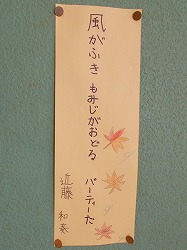 風がふき もみじがおどる パーティーだ
近藤 和奏